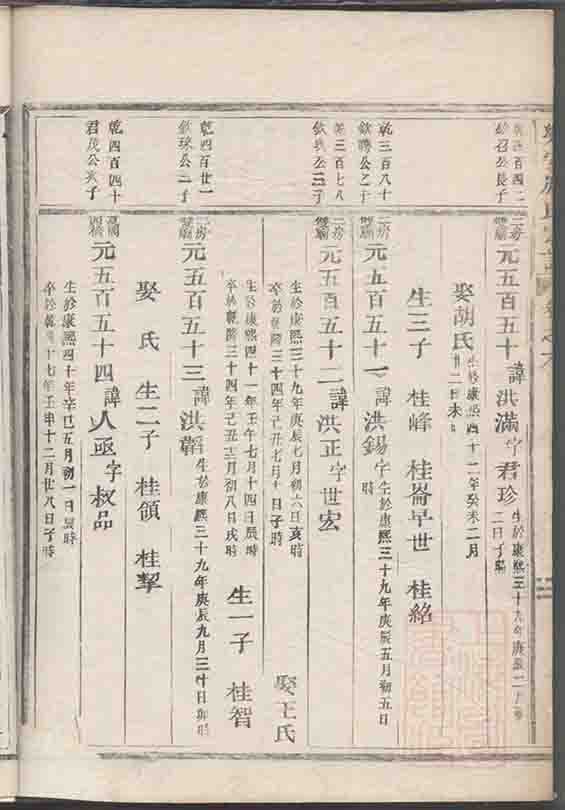 三房
元五百五十諱洪滿字君珍
生於康熙三十九年庚辰二十
二日子時
娶胡氏生於康熙四十二年癸未二月
廿二日未
生三子 桂峰 桂崙早世 桂銘
乾三百八十
欽公之子
二房
元五百五十一諱洪錫字
生於康熙三十九年庚辰五月初五日
時
三百七八
欽公三子
二房
元五百五十二諱洪正字世宏
生於康熙三十九年庚辰七月初六日亥時
卒於乾隆三十四年己丑七月十日子時
娶王氏
生於康熙四十一年壬午七月十四日辰時
卒於乾隆三十四年己丑十二月初八日戌時
生一子 桂智
乾四百廿一
欽球公二子
二房
元五百五十三諱洪韜
生於康熙三十九年庚辰九月三十日卯時
娶 氏 生二子 桂領 桂挈
乾四百四十
君茂公次子
元五百五十四諱人亟字叔品
生於康熙四十年辛巳五月初一日辰時
卒於乾隆十七年壬申十二月廿八日子時